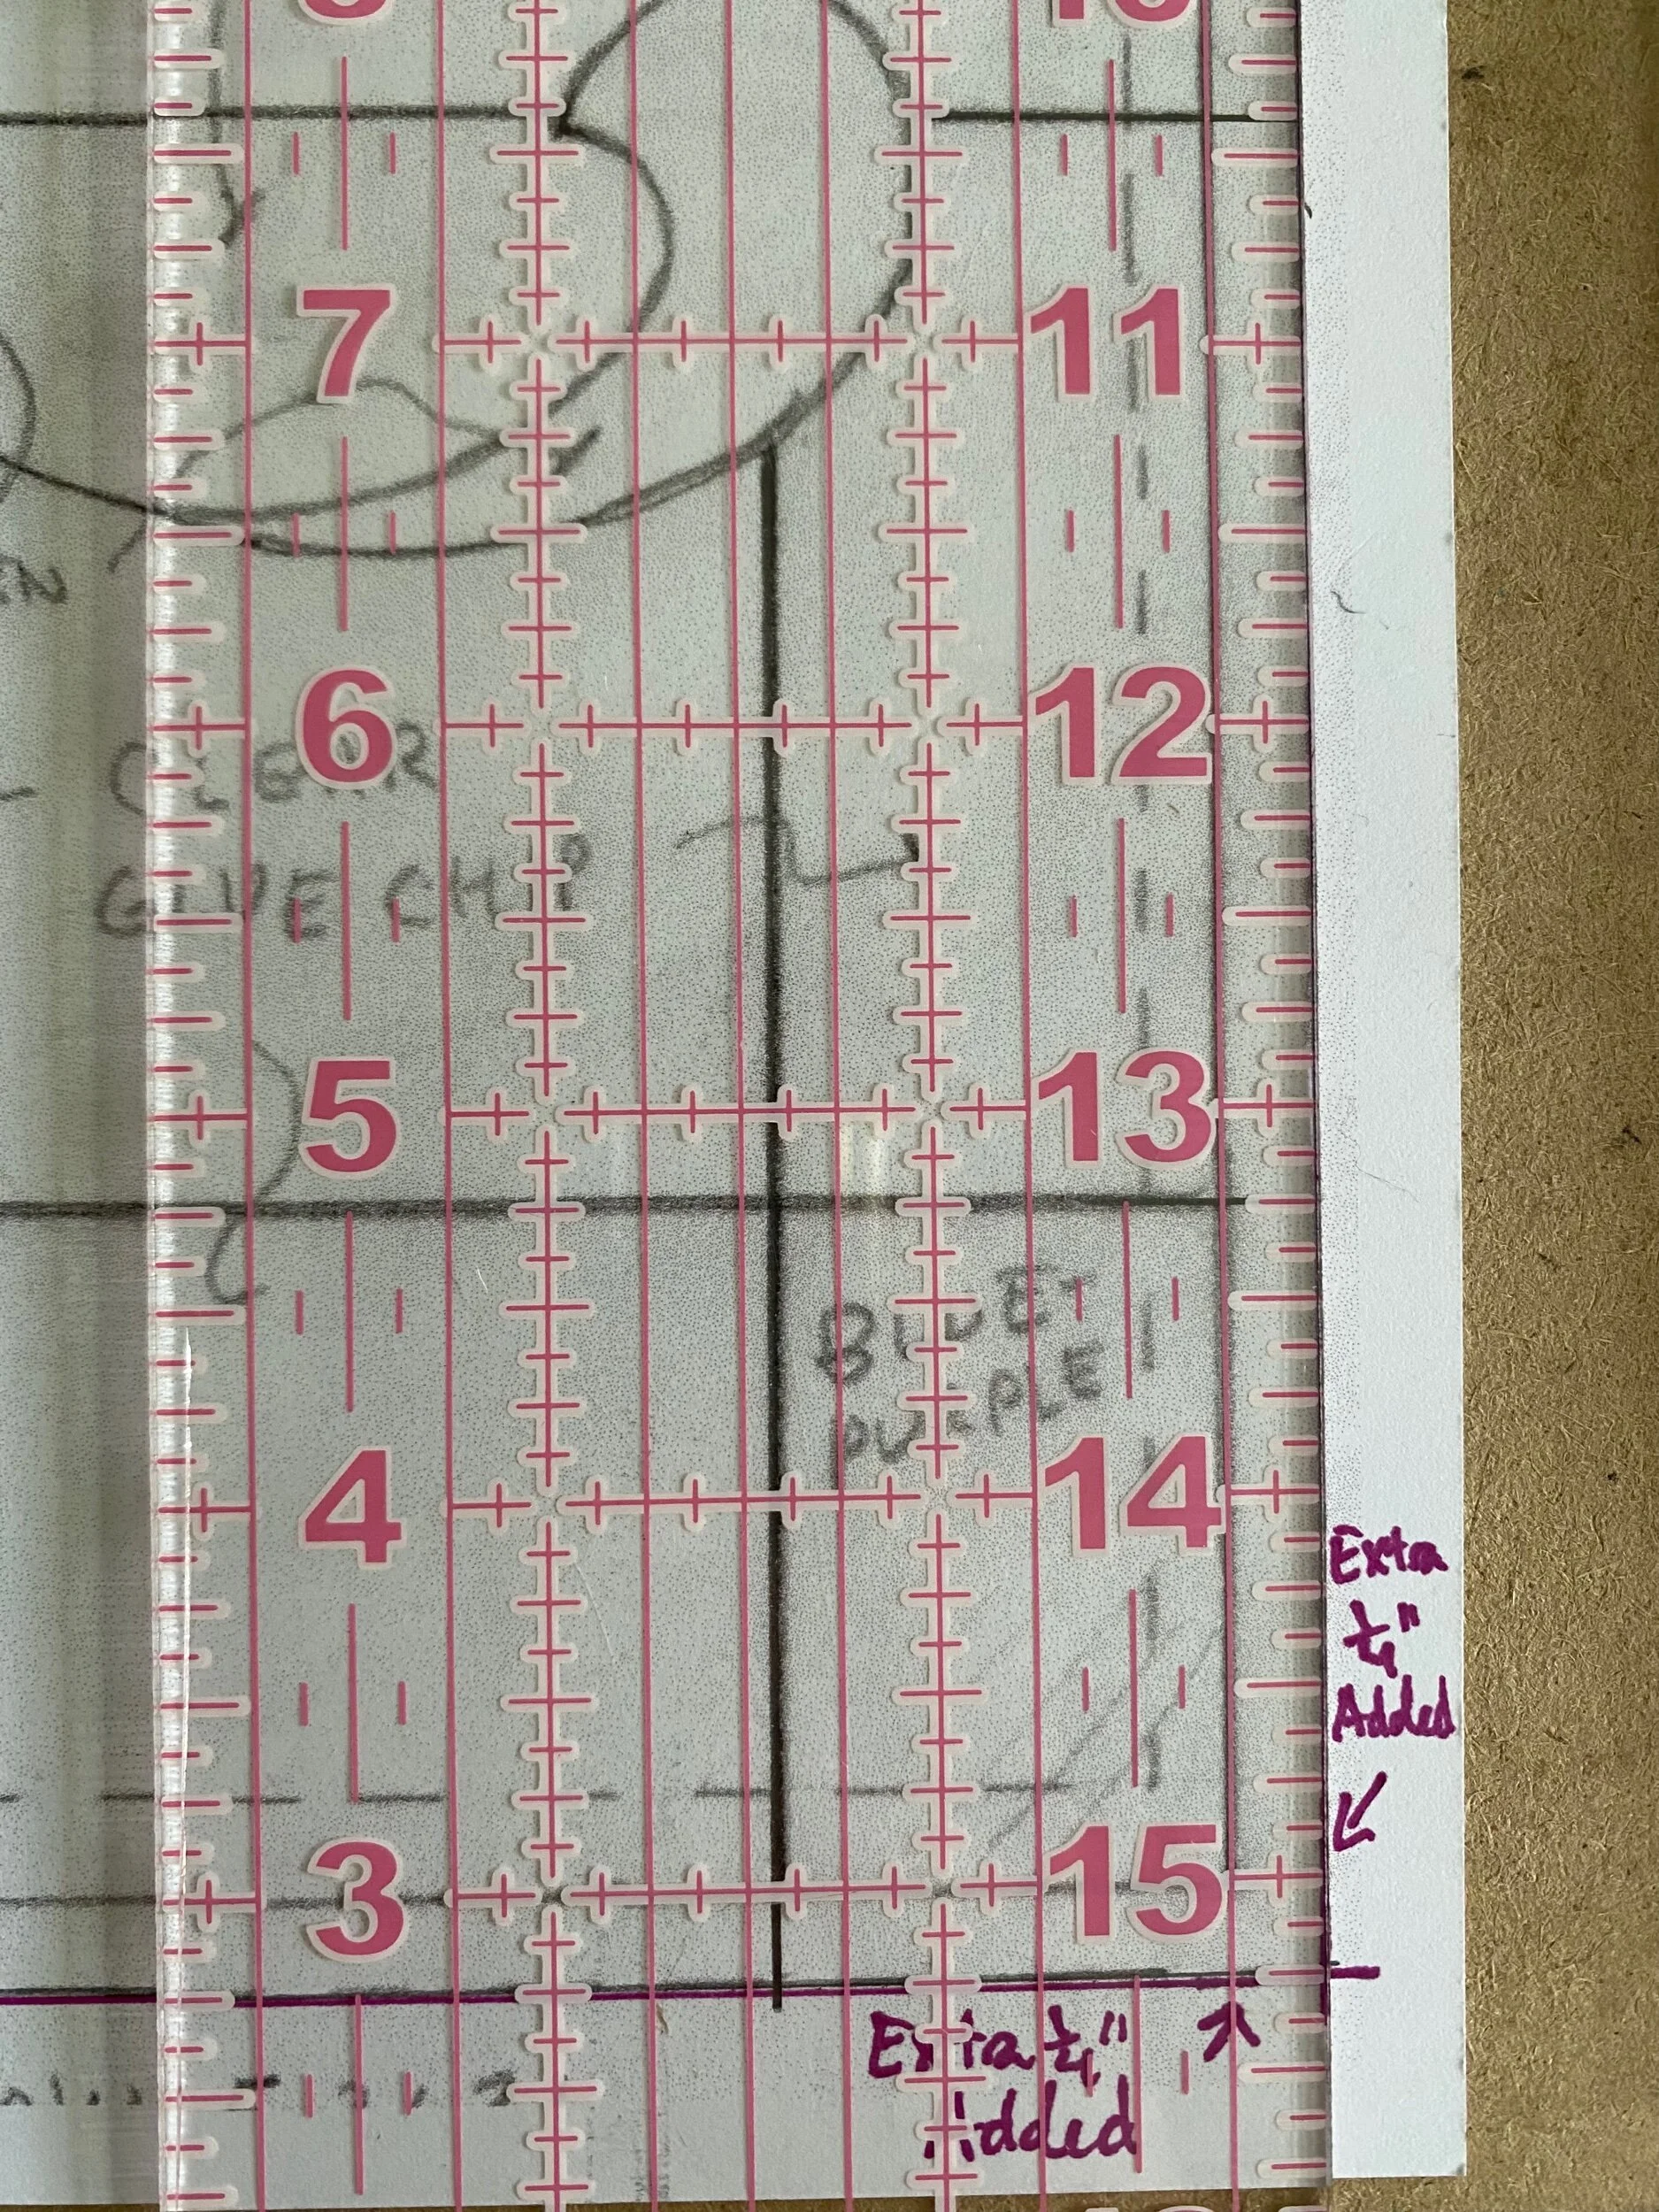 7 11
6 12
CLEAR
GLUE CHIP
5 13
BLUE-
PURPLE
4 14
Extra
1/4"
Added
3 15
Extra 1/4"
Added